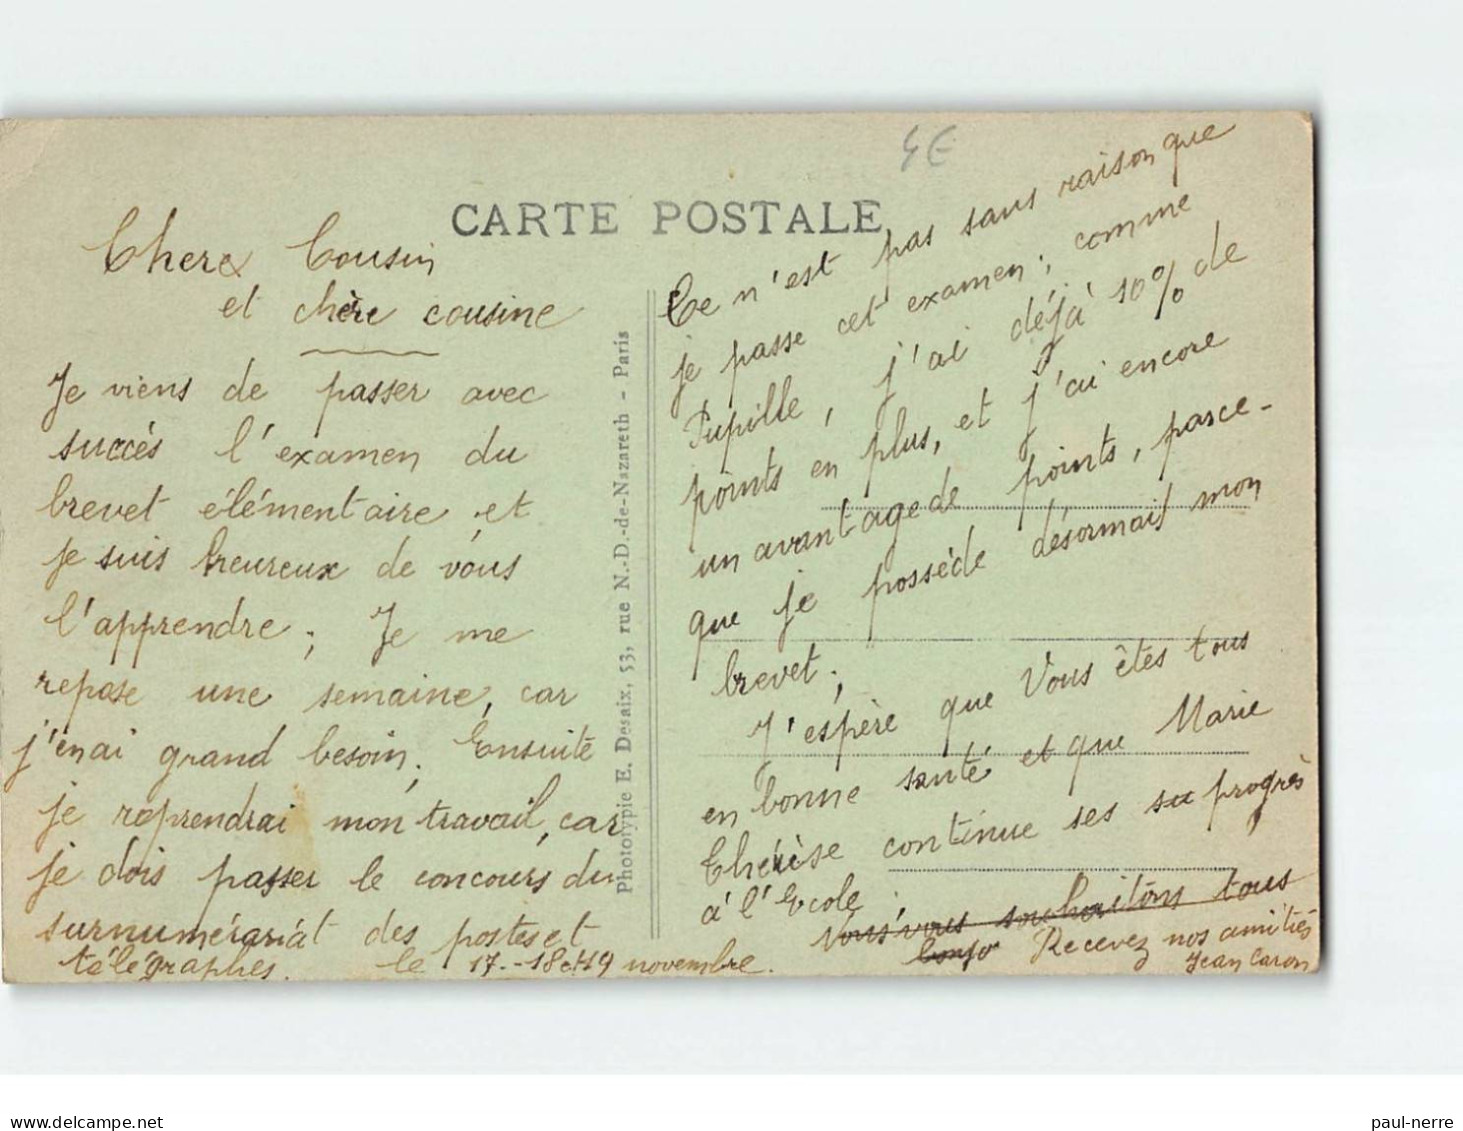 CARTE POSTALE
Cherx Cousin
et chère cousine
Je viens de passer avec
succès l'examen du
brevet élémentaire et
je suis heureux de vous
l'apprendre ; Je me
repose une semaine, car
j'en ai grand besoin. Ensuite
je reprendrai mon travail, car
je dois passer le concours du
surnumérariat des postes et
télégraphes. le 17-18 et 19 novembre.
Phototypie E. Desaix, 53, rue N.-D.-de-Nazareth - Paris
Ce n'est pas sans raison que
je passe cet examen ; comme
Pupille, j'ai déjà 10% de
points en plus, et j'ai encore
un avantage de points, parce-
que je possède désormais mon
brevet ;
J'espère que Vous êtes tous
en bonne santé et que Marie
Thérèse continue ses su progrès
à l'Ecole.
Vous vous souhaitons tous
bonjo Recevez nos amitiés
Jean Caron
paul-nerre